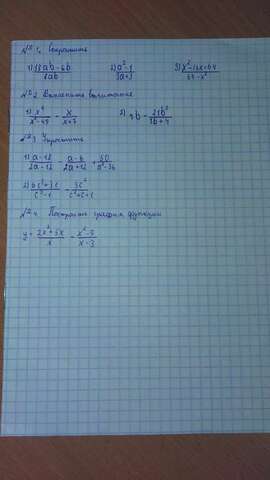 № 1. Сократите
1) 18ab-6b / 8ab 2) a²-1 / 3a+3 3) x²-16x+64 / 64-x²
№ 2 Выполните вычитание
1) x² / x²-49 - x / x+7 2) 7b - 21b² / 3b+4
№ 3 Упростите
1) a-12 / 2a-12 - a-6 / 2a+12 + 50 / a²-36
2) 6c²+3c / c³-1 - 3c² / c²+c+1
№ 4. Постройте график функции
y = 2x²+5x / x - x²-9 / x-3